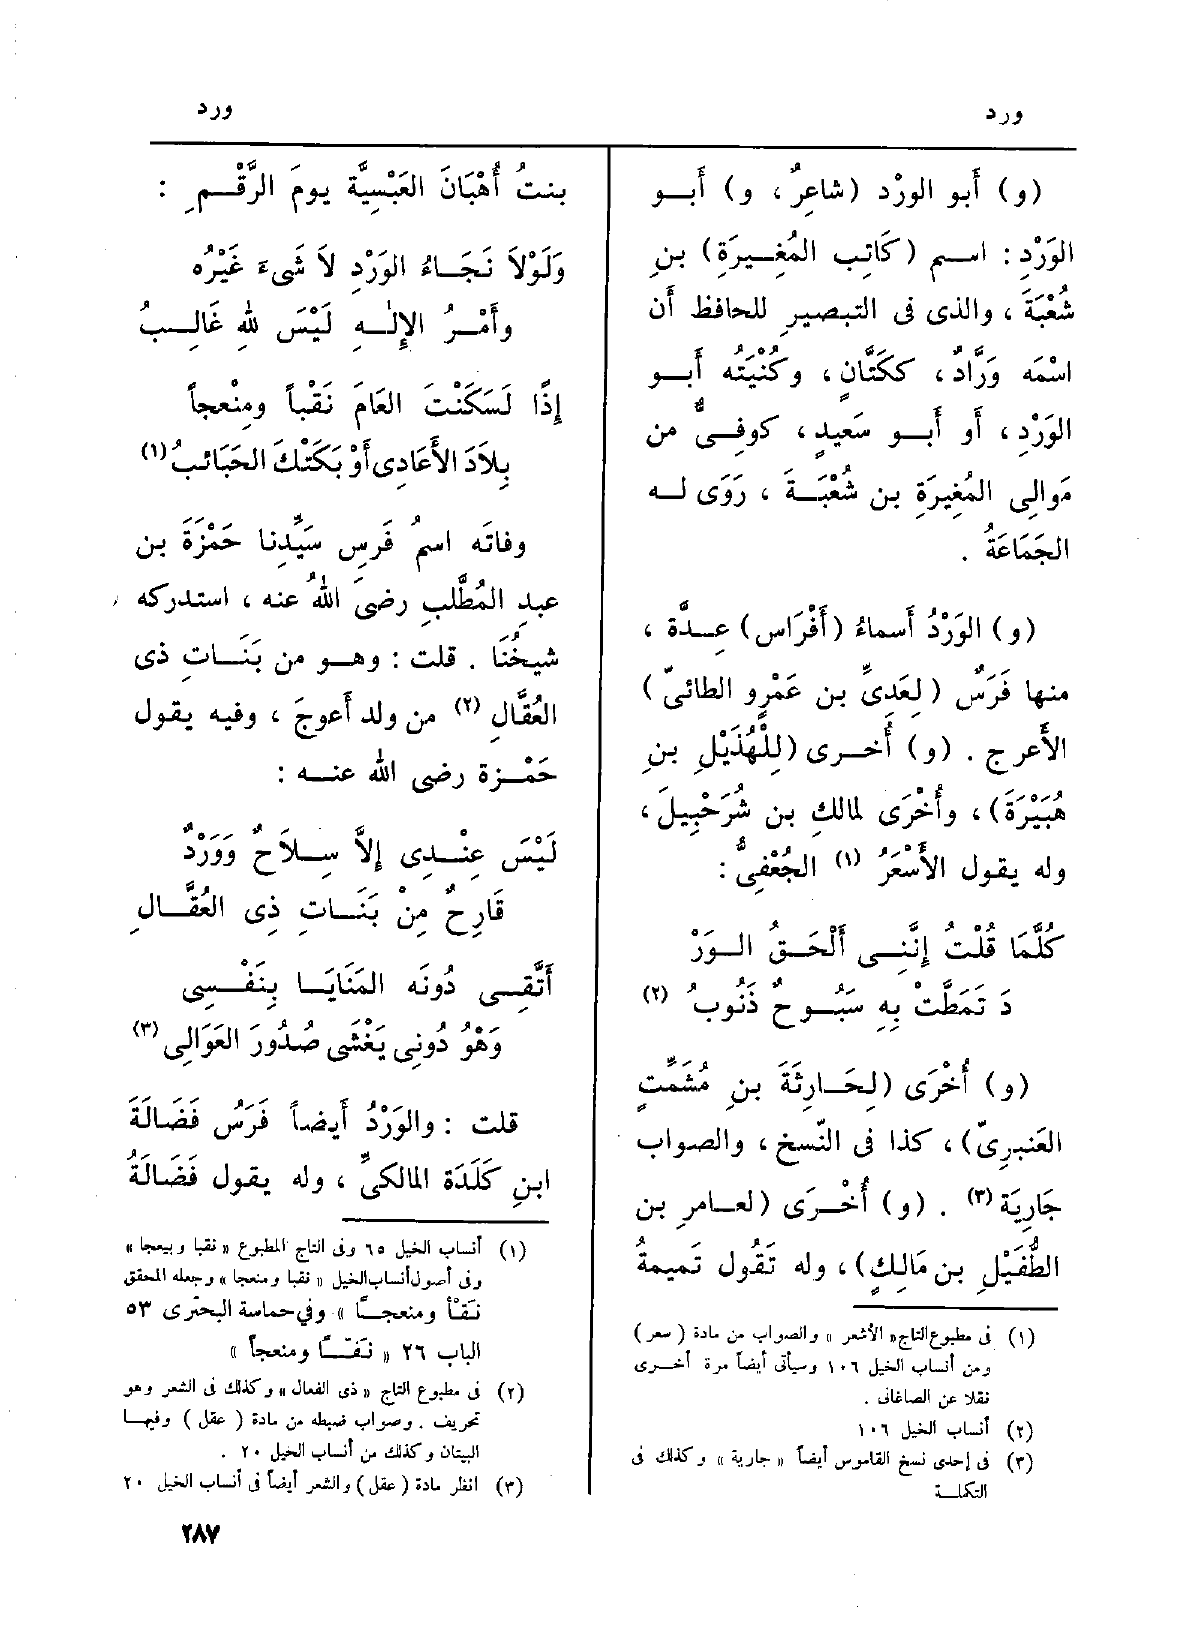 ورد
(و) أَبو الورْد (شاعِرٌ، و) أَبــو
الوَرْدِ : اســم (كَاتِب المُغِـيرَةِ) بنِ
شُعْبَةَ ، والذى فى التبصيرِ للحافظ أَن
اسْمَه وَرَّادٌ، ككَتَّانٍ، وكُنْيَتُه أَبــو
الورْدِ، أَو أَبــو سَعِيدٍ، كوفِــىٌّ من
مَوالِى المُغِيرَةِ بن شُعْبَــةَ ، رَوَى لــه
الجَمَاعَةُ .
(و) الوَرْدُ أَسماءُ (أَفْرَاسٍ) عِــدَّة ،
منها فَرَسٌ (لِعَدِىِّ بن عَمْرٍو الطائىّ)
الأَعرجِ . (و) أُخــرى (لِلْهُذَيْلِ بنِ
هُبَيْرَةَ)، وأُخْرَى لمالكِ بن شُرَحْبِيلَ،
وله يقول الأَسْعَرُ (١) الجُعْفِىُّ :
كُلَّمَا قُلْتُ إِنَّنِــى أَلْحَــقُ الــوَرْ
دَ تَمَطَّتْ بِهِ سَبُــوحٌ ذَنُوبُ (٢)
(و) أُخْرَى (لِحَــارِثَةَ بنِ مُشَمِّتٍ
العَنبرِىّ)، كذا فى النّسخِ، والصواب
جَارِيَة (٣) . (و) أُخْــرَى (لعــامرِ بن
الطُّفَيْلِ بن مَالِكٍ)، وله تَقُول تَمِيمةُ
(١) فى مطبوع التاج« الأشعر » والصواب من مادة ( سعر )
ومن أنساب الخيل ١٠٦ وسيأتى أيضاً مرة أخــرى
نقلا عن الصاغانى .
(٢) أنساب الخيل ١٠٦
(٣) فى إحدى نسخ القاموس أيضاً « جارية » وكذلك فى
التكملــة
ورد
بنتُ أُهْبَانَ العَبْسِيَّة يومَ الرَّقْــمِ :
وَلَوْلاَ نَجَــاءُ الوَرْدِ لاَ شَىءَ غَيْرُه
وأَمْــرُ الإِلٰــهِ لَيْسَ للهِ غَالِــبُ
إِذًا لَسَكَنْتَ العَامَ نَقْباً ومنْعِجاً
بِلاَدَ الأَعَادِى أَوْ بَكَتْكَ الحَبَائبُ (١)
وفاتَه اسمُ فَرَسِ سَيِّدِنا حَمْزَةَ بن
عبدِ المُطَّلِبِ رضىَ اللهُ عنه ، استدركه
شيخُنَا . قلت : وهــو من بَنَــاتِ ذى
العُقَّالِ (٢) من ولد أَعوجَ ، وفيه يقول
حَمْــزة رضى الله عنــه :
لَيْسَ عِنْــدِى إِلاَّ سِــلاَحٌ وَوَرْدٌ
قَارِحٌ مِنْ بَنَــاتِ ذِى العُقَّــالِ
أَتَّقِــى دُونَه المَنَايَــا بِنَفْــسِى
وَهْوَ دُونِى يَغْشَى صُدُورَ العَوَالِى (٣)
قلت : والوَرْدُ أَيضاً فَرَسُ فَضَالَةَ
ابنِ كَلَدَةَ المالكىِّ ، وله يقول فَضَالَةُ
(١) أنساب الخيل ٦٥ وفى التاج المطبوع « نقبا وبيعجا »
وفى أصول أنساب الخيل « نقبا ومنعجا » وجعله المحقق
نَقْــأ ومنعجــًا » وفى حماسة البحترى ٥٣
الباب ٢٦ « نَقْبــًا ومنعجاً »
(٢) فى مطبوع التاج « ذى الفعال » وكذلك فى الشعر وهو
تحريف . وصواب ضبطه من مادة ( عقل ) وفيهــا
البيتان وكذلك من أنساب الخيل ٢٠ .
(٣) انظر مادة ( عقل ) والشعر أيضاً فى أنساب الخيل ٢٠
٢٨٧